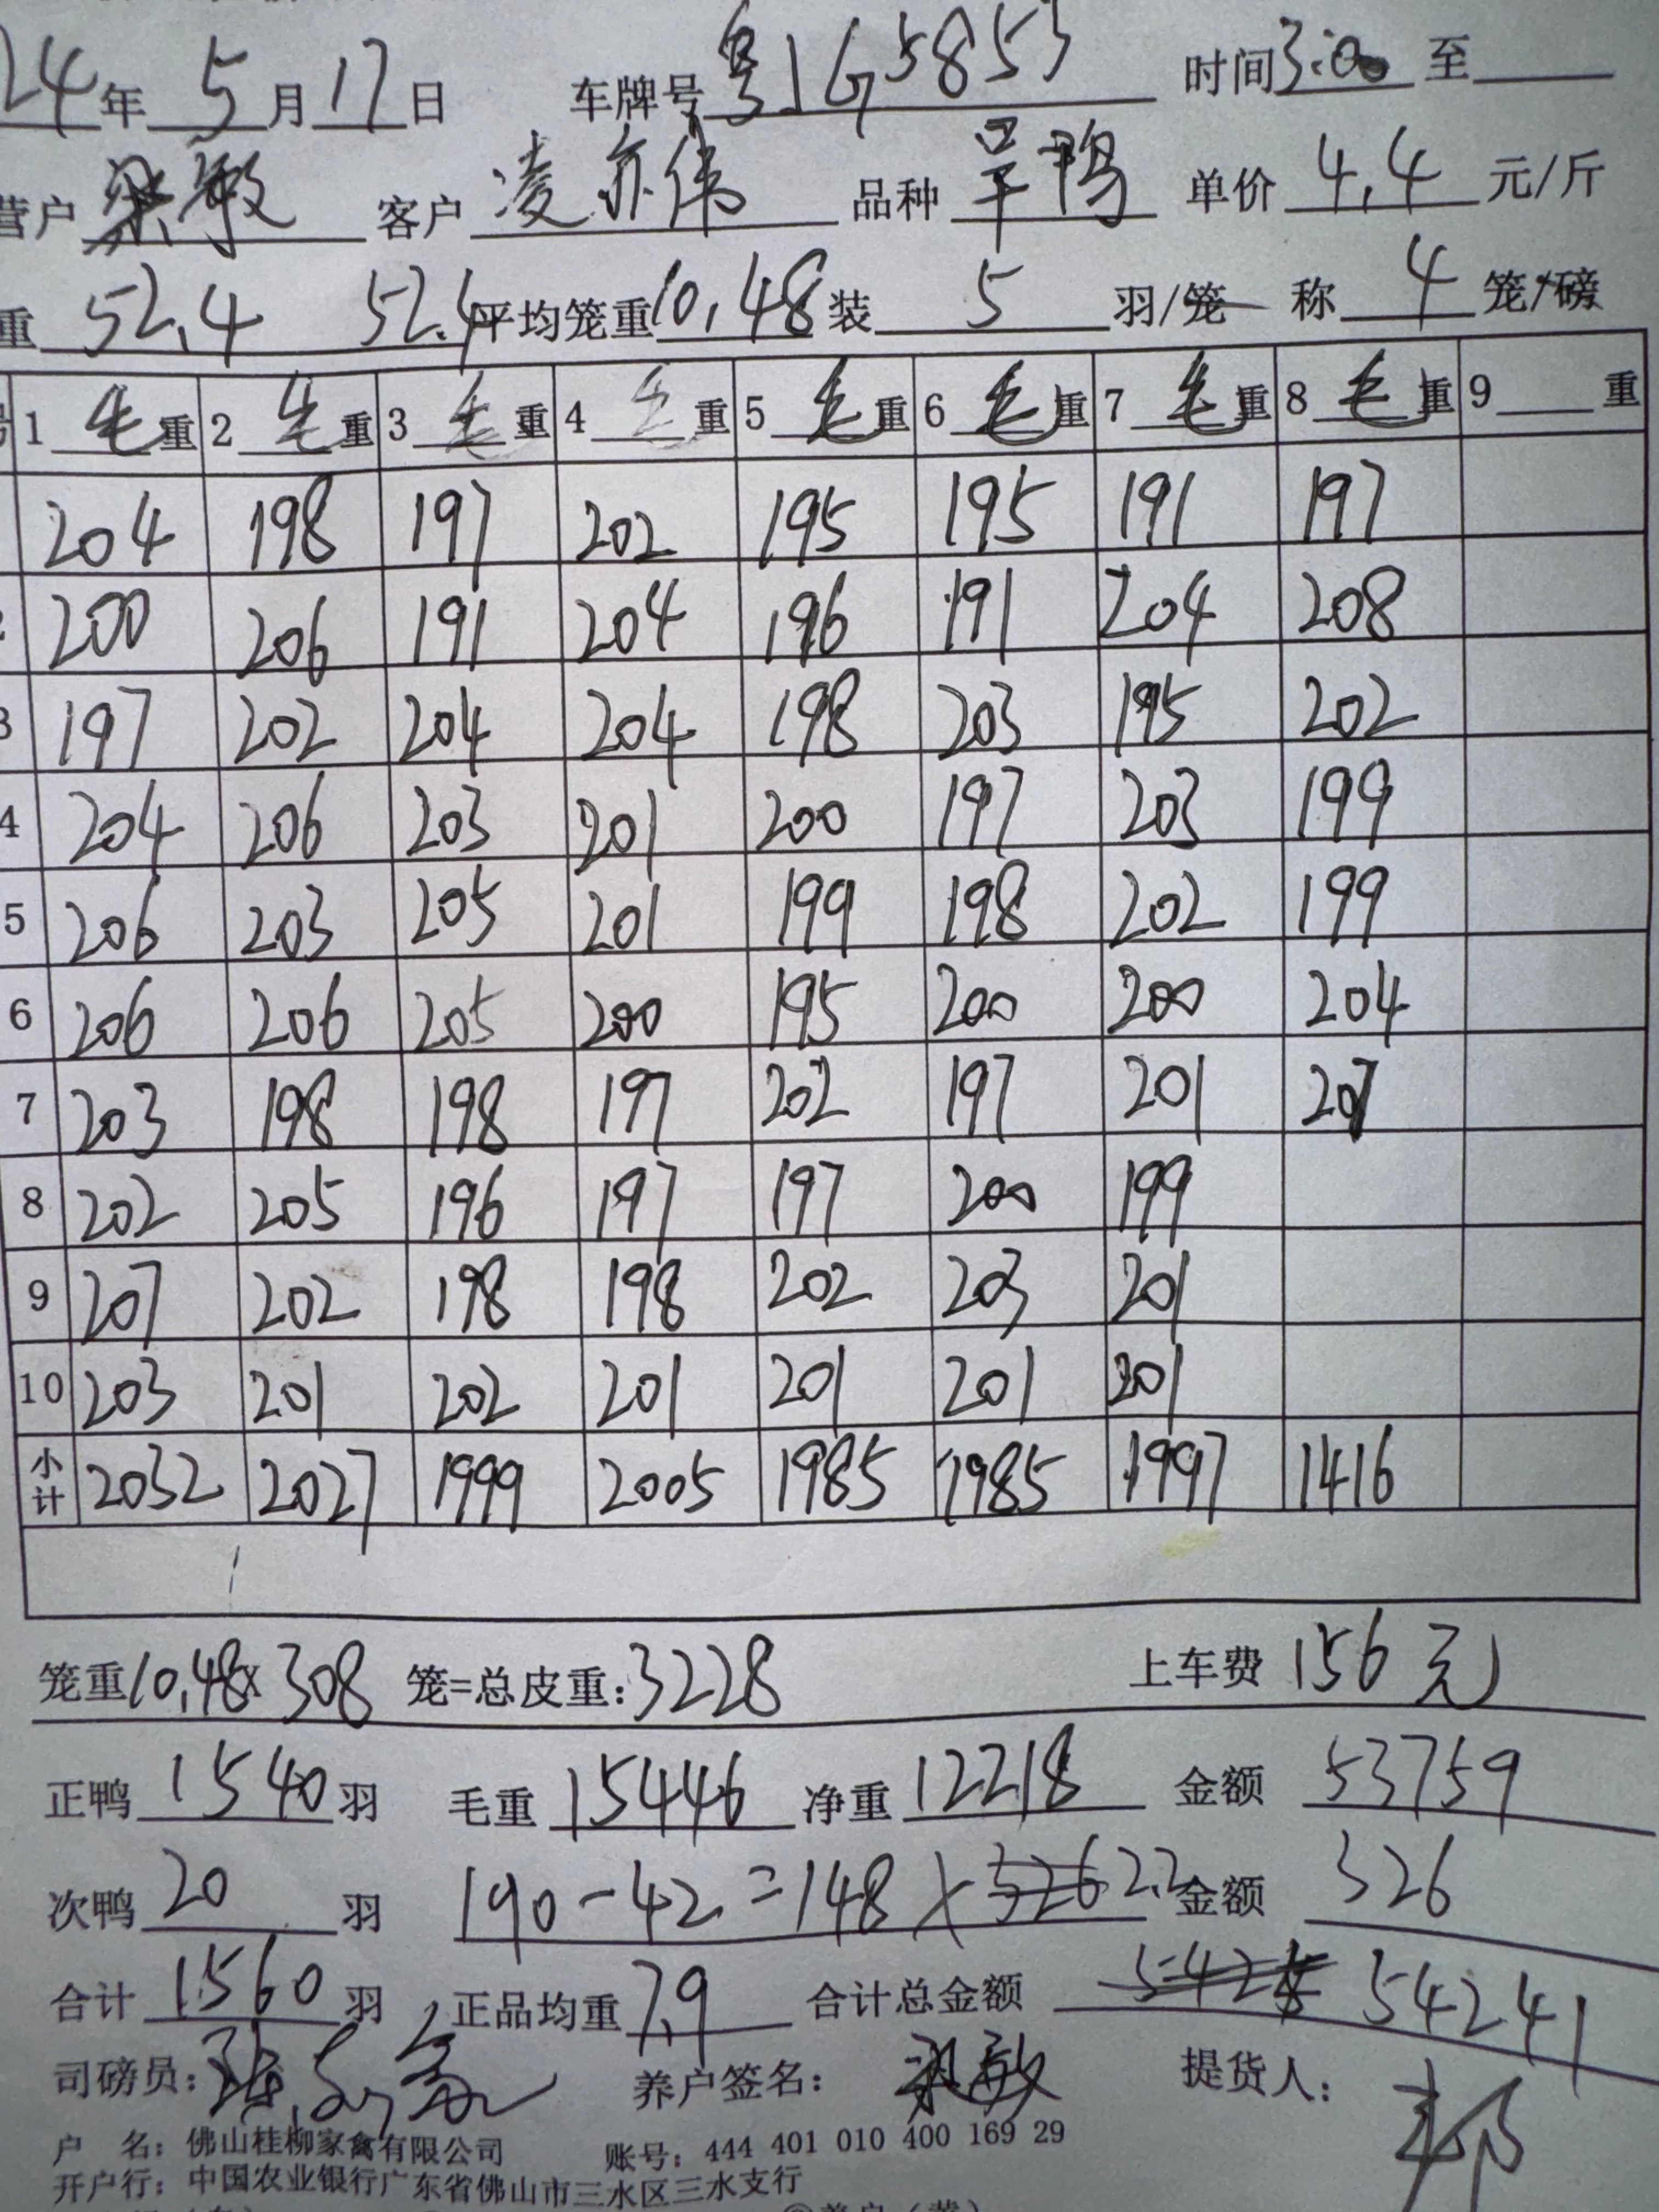 24年 5月17日 车牌号 粤J G5853 时间3:00至
营户 梁敏 客户 凌亦伟 品种 旱鸭 单价 4.4 元/斤
重 52.4 52.4 平均笼重10.48 装 5 羽/笼 称 4 笼/磅
号 1 毛重 2 毛重 3 毛重 4 毛重 5 毛重 6 毛重 7 毛重 8 毛重 9 重
204 198 197 202 195 195 191 197
2 200 206 191 204 196 191 204 208
3 197 202 204 204 198 203 195 202
4 204 206 203 201 200 197 203 199
5 206 203 205 201 199 198 202 199
6 206 206 205 200 195 200 200 204
7 203 198 198 197 202 197 201 207
8 202 205 196 197 197 200 199
9 207 202 198 198 202 203 201
10 203 201 202 201 201 201 201
小计 2032 2027 1999 2005 1985 1985 1997 1416
笼重10.48x 308 笼=总皮重:3228 上车费 156元
正鸭 1540 羽 毛重 15446 净重 12218 金额 53759
次鸭 20 羽 190-42=148 x 326 2.2 金额 326
合计 1560 羽 正品均重 7.9 合计总金额 54241
司磅员: 养户签名: 梁敏 提货人:
户 名: 佛山桂柳家禽有限公司 账号: 444 401 010 400 169 29
开户行: 中国农业银行广东省佛山市三水区三水支行